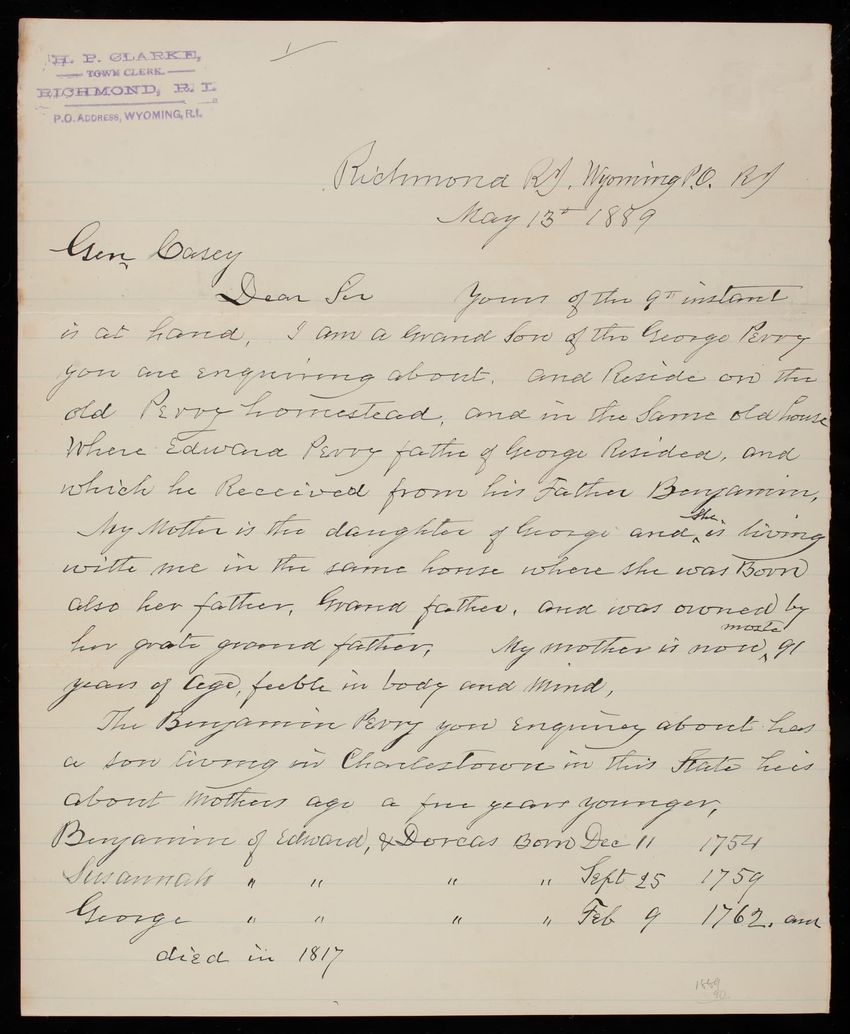 H. P. CLARKE,
TOWN CLERK.
RICHMOND, R. I.
P.O. ADDRESS, WYOMING, R.I.
Richmond RI, Wyoming P.O. RI
May 13th 1889
Gen, Casey
Dear Sir Yours of the 9th instant
is at hand, I am a Grand Son of the George Perry
you are enquiring about, and Reside on the
old Perry homestead, and in the Same old house
Where Edward Perry fathe of George Resided, and
which he Received from his Father Benjamin,
My Mother is the daughter of George and she is living
withe me in the same house where she was Born
also her father, Grand father, and was owned by
her grate grand father, My mother is now moste 91
years of Age, feeble in body and Mind,
The Benjamin Perry you enquirey about has
a son living in Charlestown in this State he is
about Mothers age a few years younger,
Benjamin of Edward, & Dorcas Born Dec 11 1754
Susannah " " " " Sept 25 1759
George " " " " Feb 9 1762. and
died in 1817
1889
90